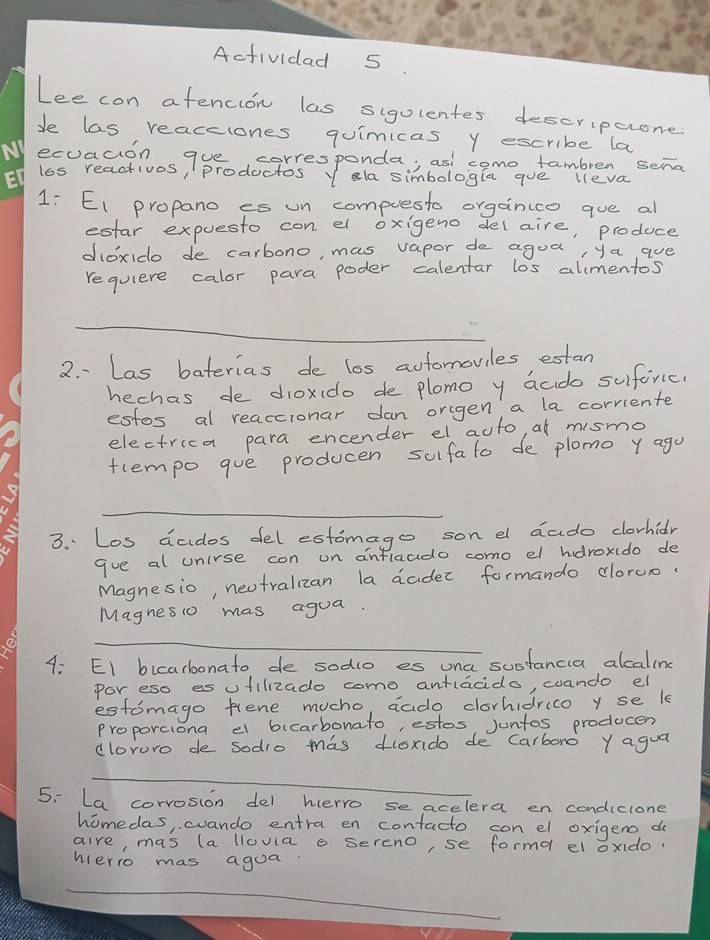 Actividad 5.
Lee con atención las siguientes descripcione
de las reacciones químicas y escribe la
ecuación que corresponda; así como tambien seña
los reactivos, productos y la simbología que lleva
1: El propano es un compuesto orgánico que al
estar expuesto con el oxígeno del aire, produce
dióxido de carbono, mas vapor de agua, ya que
requiere calor para poder calentar los alimentos
2.- Las baterías de los automoviles estan
hechas de dioxido de plomo y ácido sulfúric
estos al reaccionar dan origen a la corriente
electrica para encender el auto, al mismo
tiempo que producen sulfato de plomo y agu
3.- Los ácidos del estómago son el ácido clorhídr
que al unirse con un antiacido como el hidroxido de
Magnesio, neutralizan la ácidez formando cloruro
Magnesio mas agua.
4: El bicarbonato de sodio es una sustancia alcalin
por eso es utilizado como antiácido, cuando el
estómago tiene mucho ácido clorhidrico y se le
proporciona el bicarbonato, estos juntos producen
cloruro de sodio más dioxido de carbono y agua
5.- La corrosión del hierro se acelera en condicione
húmedas, cuando entra en contacto con el oxígeno de
aire, mas la lluvia o sereno, se forma el óxido
hierro mas agua.